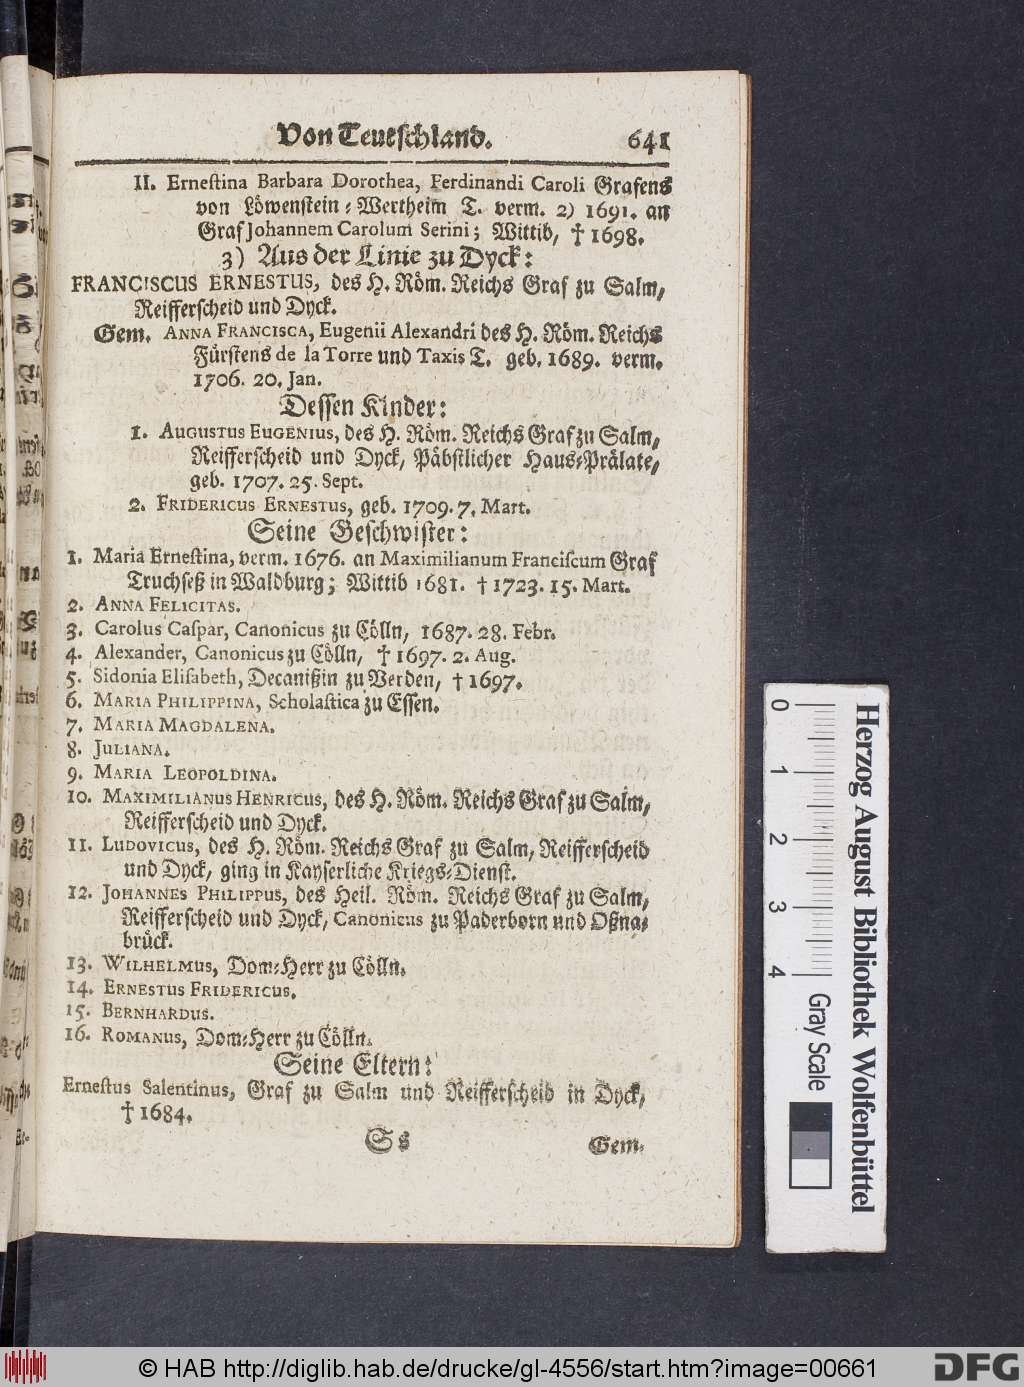 Von Teutschland. 641
II. Ernestina Barbara Dorothea, Ferdinandi Caroli Grafens
von Löwenstein-Wertheim T. verm. 2) 1691. an
Graf Johannem Carolum Serini; Wittib, † 1698.
3) Aus der Linie zu Dyck:
FRANCISCUS ERNESTUS, des H. Röm. Reichs Graf zu Salm,
Reifferscheid und Dyck.
Gem. ANNA FRANCISCA, Eugenii Alexandri des H. Röm. Reichs
Fürstens de la Torre und Taxis T. geb. 1689. verm.
1706. 20. Jan.
Dessen Kinder:
1. AUGUSTUS EUGENIUS, des H. Röm. Reichs Graf zu Salm,
Reifferscheid und Dyck, Päbstlicher Haus-Prälate,
geb. 1707. 25. Sept.
2. FRIDERICUS ERNESTUS, geb. 1709. 7. Mart.
Seine Geschwister:
1. Maria Ernestina, verm. 1676. an Maximilianum Franciscum Graf
Truchseß in Waldburg; Wittib 1681. † 1723. 15. Mart.
2. ANNA FELICITAS.
3. Carolus Caspar, Canonicus zu Cölln, 1687. 28. Febr.
4. Alexander, Canonicus zu Cölln, † 1697. 2. Aug.
5. Sidonia Elisabeth, Decanißin zu Verden, † 1697.
6. MARIA PHILIPPINA, Scholastica zu Essen.
7. MARIA MAGDALENA.
8. JULIANA.
9. MARIA LEOPOLDINA.
10. MAXIMILIANUS HENRICUS, des H. Röm. Reichs Graf zu Salm,
Reifferscheid und Dyck.
11. LUDOVICUS, des H. Röm. Reichs Graf zu Salm, Reifferscheid
und Dyck, ging in Kayserliche Kriegs-Dienst.
12. JOHANNES PHILIPPUS, des Heil. Röm. Reichs Graf zu Salm,
Reifferscheid und Dyck, Canonicus zu Paderborn und Oßna-
brück.
13. WILHELMUS, Dom-Herr zu Cölln.
14. ERNESTUS FRIDERICUS.
15. BERNHARDUS.
16. ROMANUS, Dom-Herr zu Cölln.
Seine Eltern:
Ernestus Salentinus, Graf zu Salm und Reifferscheid in Dyck,
† 1684.
Ss Gem-
0 1 2 3 4 Gray Scale
Herzog August Bibliothek Wolfenbüttel
© HAB http://diglib.hab.de/drucke/gl-4556/start.htm?image=00661
DFG